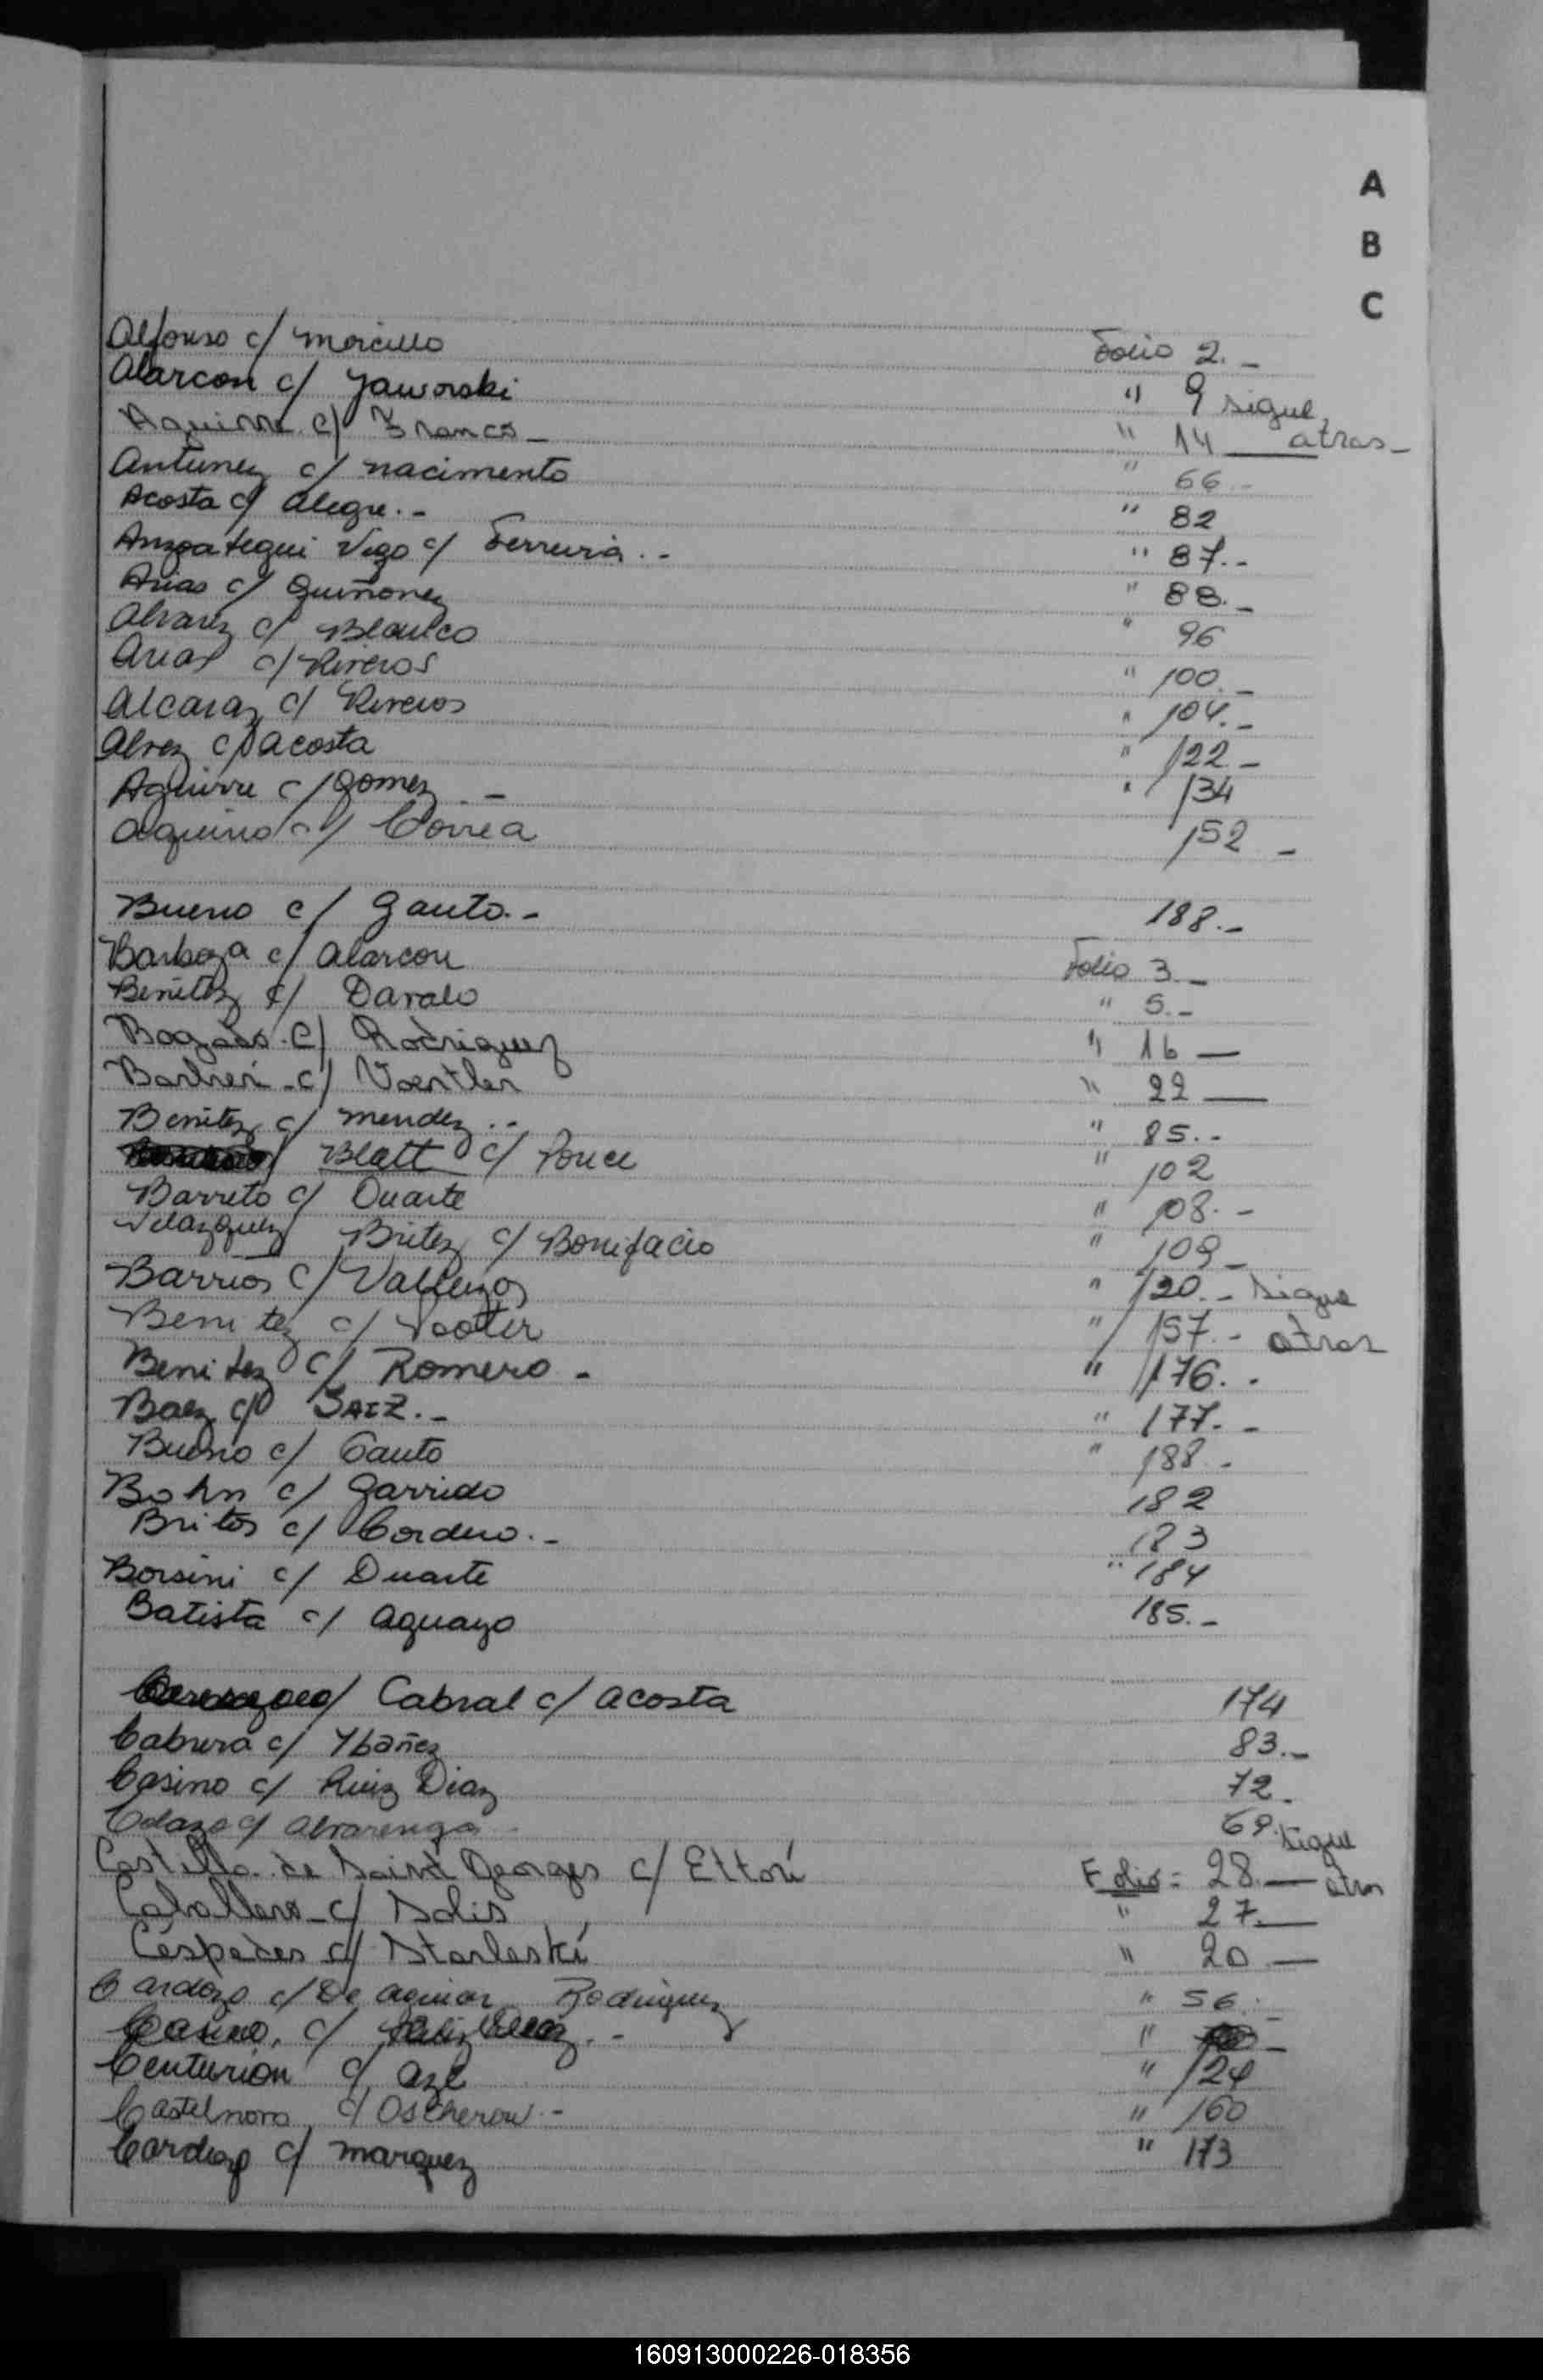 A
B
C
Alfonso c/ Morcillo Folio 2.-
Alarcon c/ Jaworski " 9 sigue
Aquirre c/ Franco - " 14 atras -
Antunez c/ nacimento " 66 -
Acosta c/ Alegre.- " 82
Anzoategui Vego c/ Ferreira.- " 87.-
Arias c/ Quiñonez " 88.-
Alvarez c/ Blanco " 96
Arias c/ Riveros " 100.-
Alcaraz c/ Riveros " 104.-
Alvez c/ Acosta " 122.-
Aguirre c/ Gomez.- " 134
Aquino c/ Correa 152 -
Bueno c/ Gauto.- 188.-
Barboza c/ Alarcon Folio 3.-
Benitez c/ Davalo " 5.-
Bogado c/ Rodriguez " 16 —
Barbieri c/ " 22 —
Benitez c/ mendez.- " 85.-
Blatt c/ Ponce " 102
Barreto c/ Duarte " 108.-
Velazquez Britez c/ Bonifacio " 109 -
Barrios c/ Vallejos " 120.- sigue
Benitez c/ " 157.- atras
Benitez c/ Romero - " 176.-
Baez c/ SAEZ.- " 177.-
Bueno c/ Gauto " 188.-
Bohn c/ Garrido 182
Britos c/ Cordero.- 183
Borsini c/ Duarte " 184
Batista c/ Aguayo 185.-
Cabral c/ Acosta 174
Cabrera c/ Ybañez 83.-
Casino c/ Ruiz Diaz 72.
Colazo c/ Alvarenga - 69.- sigue
Castillo de Saint Georges c/ Ettori Folio = 28.— atras
Caballero c/ Solis " 27.—
Céspedes c/ " 20 —
Cardozo c/ De Aguiar Rodriguez " 56.-
Casino, c/ Ruiz Diaz.- " -
Centurion c/ Aze " 124
Castelnovo c/ .- " 160
Cardozo c/ Marquez " 173
160913000226-018356